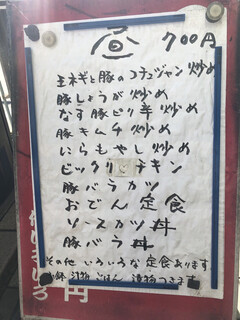 昼 700円
玉ネギと豚のコチュジャン炒め
豚しょうが炒め
なす豚ピリ辛炒め
豚キムチ炒め
にらもやし炒め
ビックリチキン
豚バラカツ
おでん定食
ソースカツ丼
豚バラ丼
その他いろいろな定食あります
小鉢 汁物 ごはん 漬物つきます
円